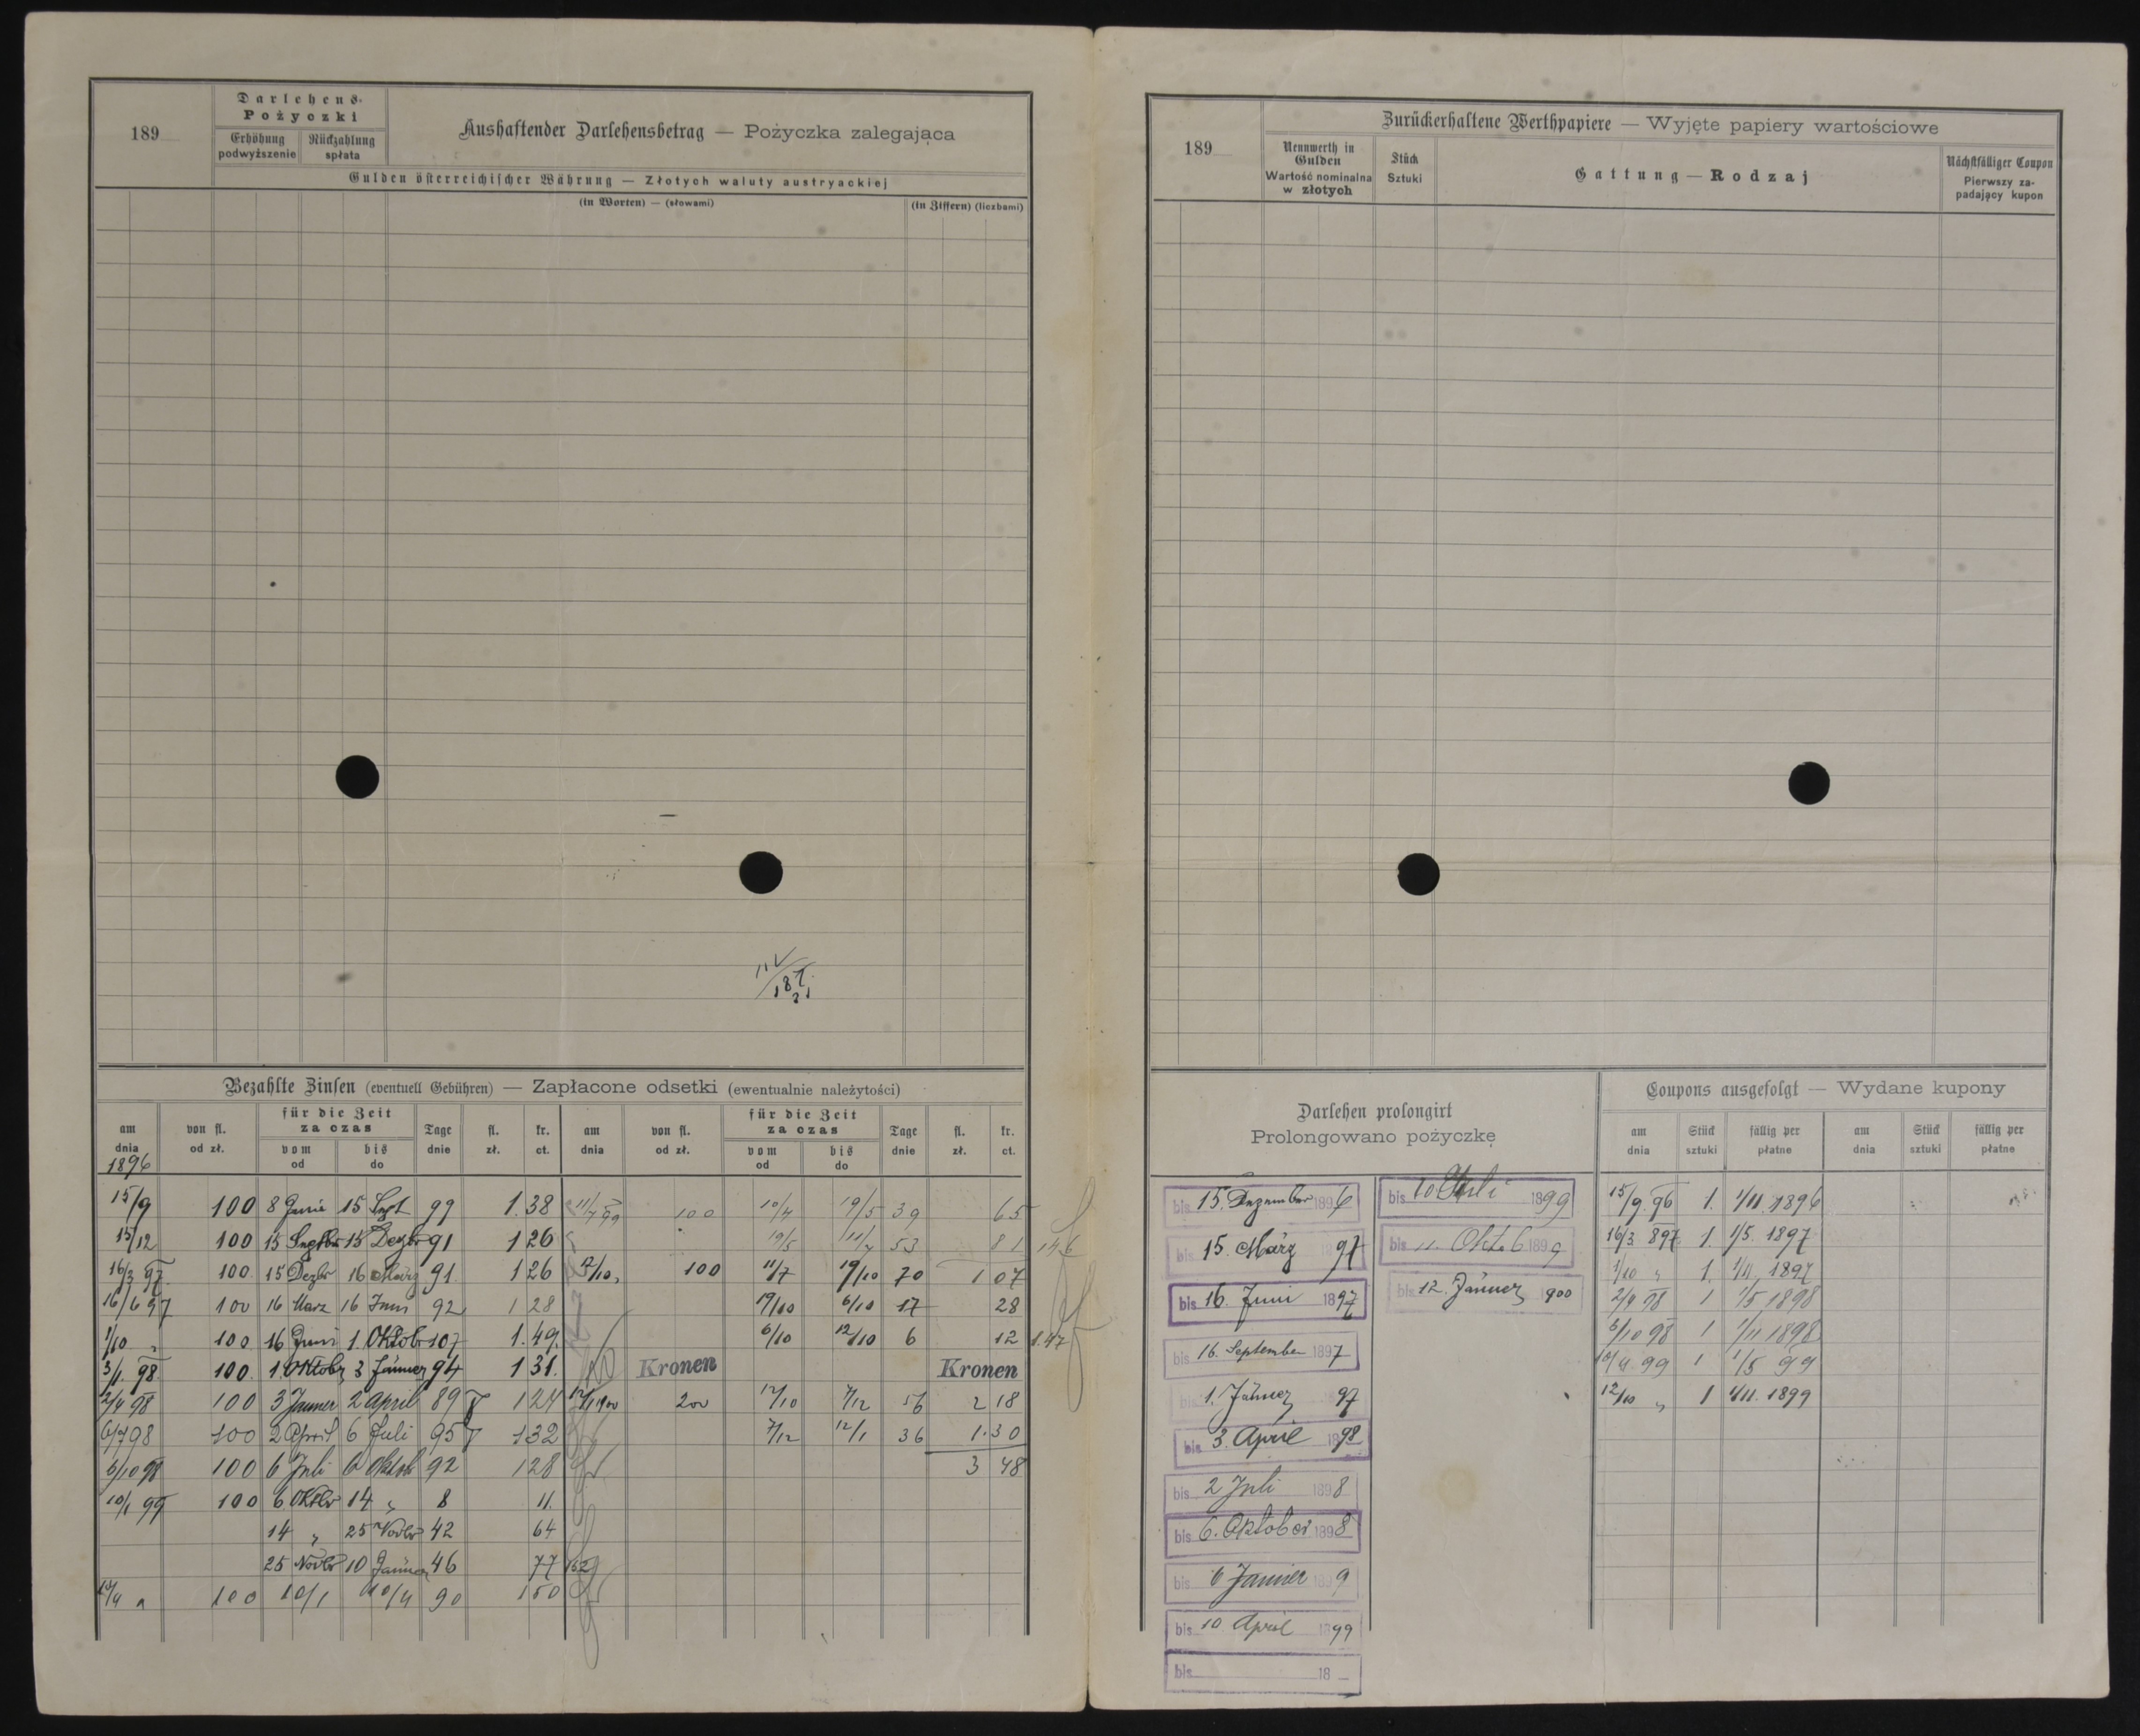 189
Darlehens-
Pożyczki
Erhöhung
podwyższenie
Rückzahlung
spłata
Aushaftender Darlehensbetrag — Pożyczka zalegająca
Gulden österreichischer Währung — Złotych waluty austryackiej
(in Worten) — (słowami)
(in Ziffern) (liczbami)
Bezahlte Zinsen (eventuell Gebühren) — Zapłacone odsetki (ewentualnie należytości)
am
dnia
von fl.
od zł.
für die Zeit
za czas
vom
od
bis
do
Tage
dnie
fl.
zł.
kr.
ct.
am
dnia
von fl.
od zł.
für die Zeit
za czas
vom
od
bis
do
Tage
dnie
fl.
zł.
kr.
ct.
1896
15/9 100 8 Juni 15 Sept 99 1.38
15/12 100 15 Septbr 15 Dezbr 91 1 26
16/3 97 100 15 Dezbr 16 März 91 1 26
16/6 97 100 16 März 16 Juni 92 1 28
1/10 " 100 16 Juni 1. Oktob 107 1.49
3/1 98 100 1. Oktobr 3 Jänner 94 1 31.
2/4 98 100 3 Jänner 2 April 89 1 24
6/7 98 100 2 April 6 Juli 95 1 32
6/10 98 100 6 Juli 6 Oktob 92 1 28
10/1 99 100 6 Oktbr 14 " 8 11.
14 " 25 Novbr 42 64
25 Novbr 10 Jänner 46 77 152
10/4 " 100 10/1 10/4 90 1 50
11/7 99 100 10/4 19/5 39 65
19/5 11/7 53 81 1.46
12/10 " 100 11/7 19/10 70 1 07
19/10 6/10 17 28
6/10 12/10 6 12 1.47
Kronen Kronen
12/1 1900 200 12/10 7/12 56 2 18
7/12 12/1 36 1.30
3 48
189
Zurückerhaltene Werthpapiere — Wyjęte papiery wartościowe
Nennwerth in
Gulden
Wartość nominalna
w złotych
Stück
Sztuki
Gattung — Rodzaj
Nächstfälliger Coupon
Pierwszy za-
padający kupon
Darlehen prolongirt
Prolongowano pożyczkę
bis 15. Dezember 1896
bis 15. März 97
bis 16. Juni 1897
bis 16. September 1897
bis 1. Jänner 97
bis 3. April 1898
bis 2 Juli 1898
bis 6. Oktober 1898
bis 6 Jänner 1899
bis 10 April 1899
bis 18 —
bis 10 Juli 1899
bis 11. Oktob 1899
bis 12. Jänner 1900
Coupons ausgefolgt — Wydane kupony
am
dnia
Stück
sztuki
fällig per
płatne
am
dnia
Stück
sztuki
fällig per
płatne
15/9. 96 1. 1/11 1896
16/3 897 1. 1/5. 1897
1/10 " 1. 1/11 1897
2/4 98 1 1/5 1898
6/10 98 1 1/11 1898
10/4 99 1 1/5 99
12/10 " 1 1/11. 1899